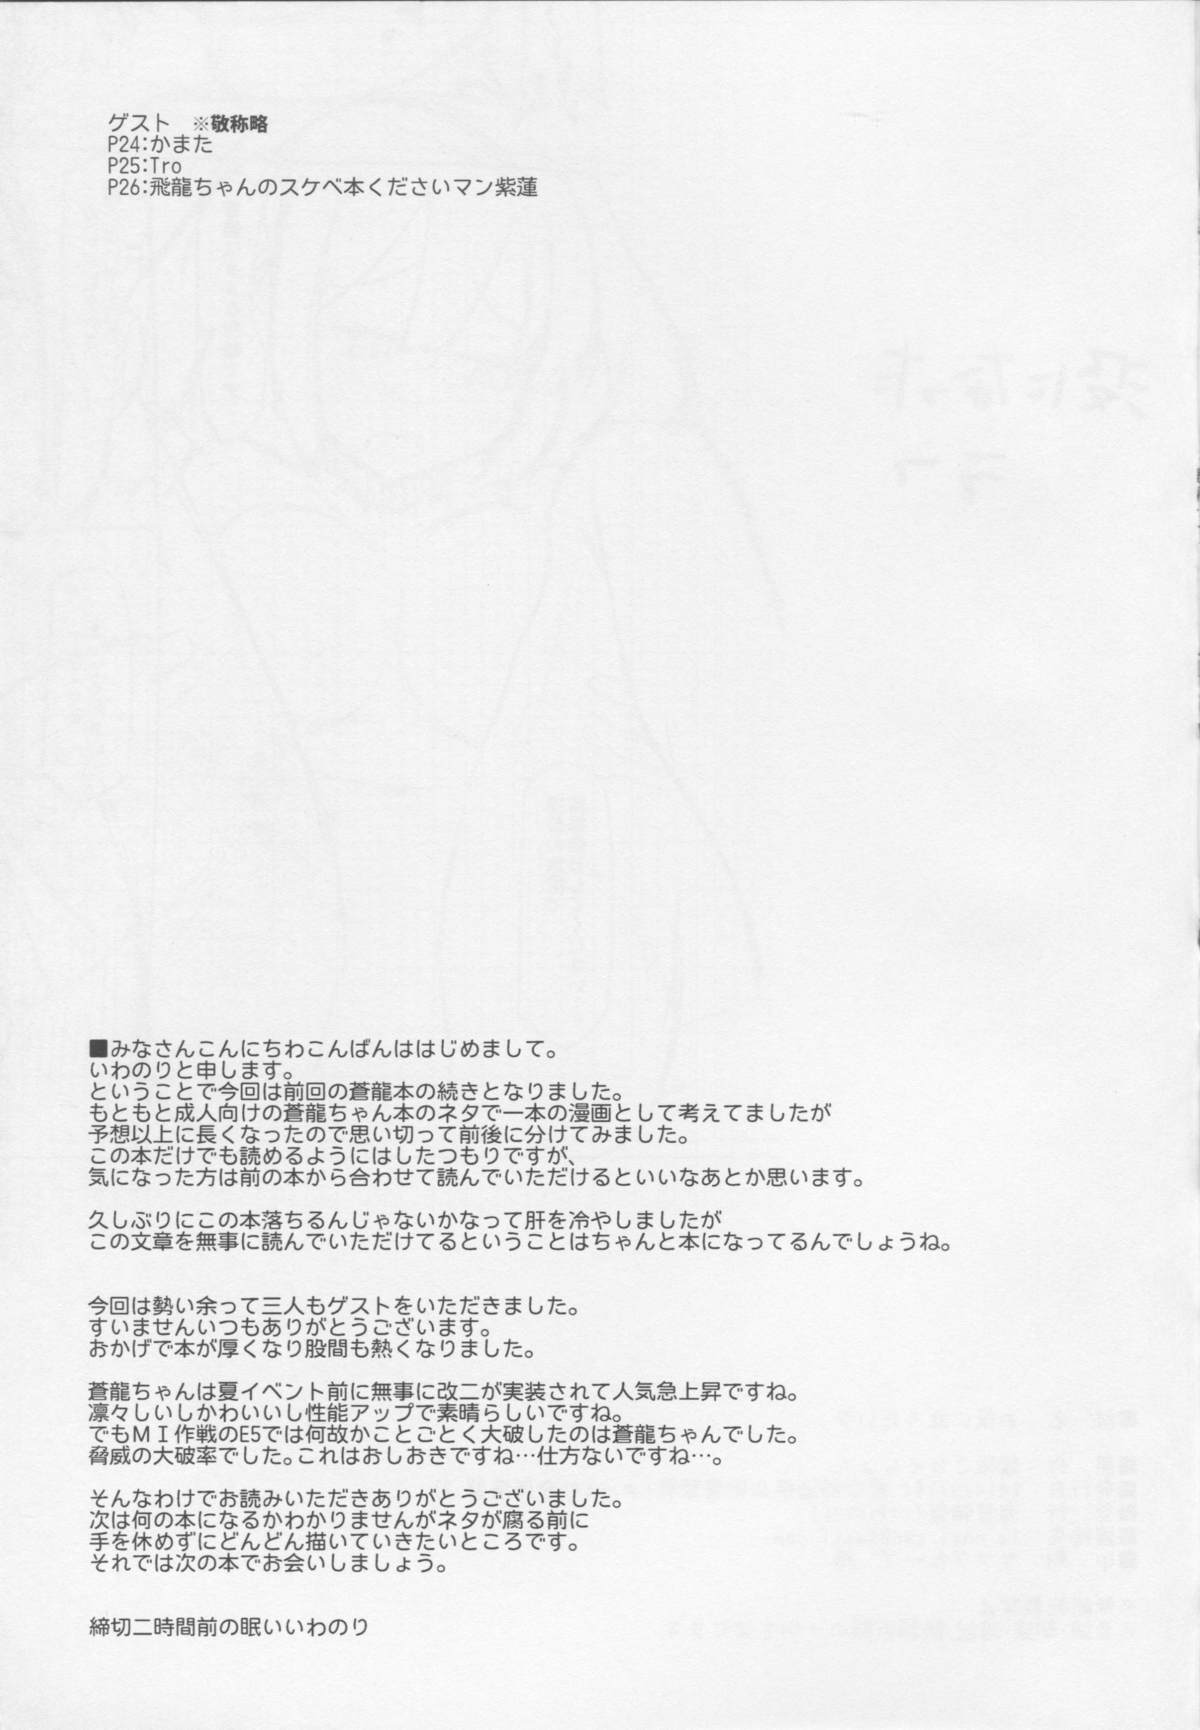 ゲスト　※敬称略
P24:かまた
P25:Tro
P26:飛龍ちゃんのスケベ本くださいマン紫蓮
■みなさんこんにちわこんばんははじめまして。
いわのりと申します。
ということで今回は前回の蒼龍本の続きとなりました。
もともと成人向けの蒼龍ちゃん本のネタで一本の漫画として考えてましたが
予想以上に長くなったので思い切って前後に分けてみました。
この本だけでも読めるようにはしたつもりですが、
気になった方は前の本から合わせて読んでいただけるといいなあとか思います。
久しぶりにこの本落ちるんじゃないかなって肝を冷やしましたが
この文章を無事に読んでいただけてるということはちゃんと本になってるんでしょうね。
今回は勢い余って三人もゲストをいただきました。
すいませんいつもありがとうございます。
おかげで本が厚くなり股間も熱くなりました。
蒼龍ちゃんは夏イベント前に無事に改二が実装されて人気急上昇ですね。
凛々しいしかわいいし性能アップで素晴らしいですね。
でもＭＩ作戦のE5では何故かことごとく大破したのは蒼龍ちゃんでした。
脅威の大破率でした。これはおしおきですね…仕方ないですね…。
そんなわけでお読みいただきありがとうございました。
次は何の本になるかわかりませんがネタが腐る前に
手を休めずにどんどん描いていきたいところです。
それでは次の本でお会いしましょう。
締切二時間前の眠いいわのり